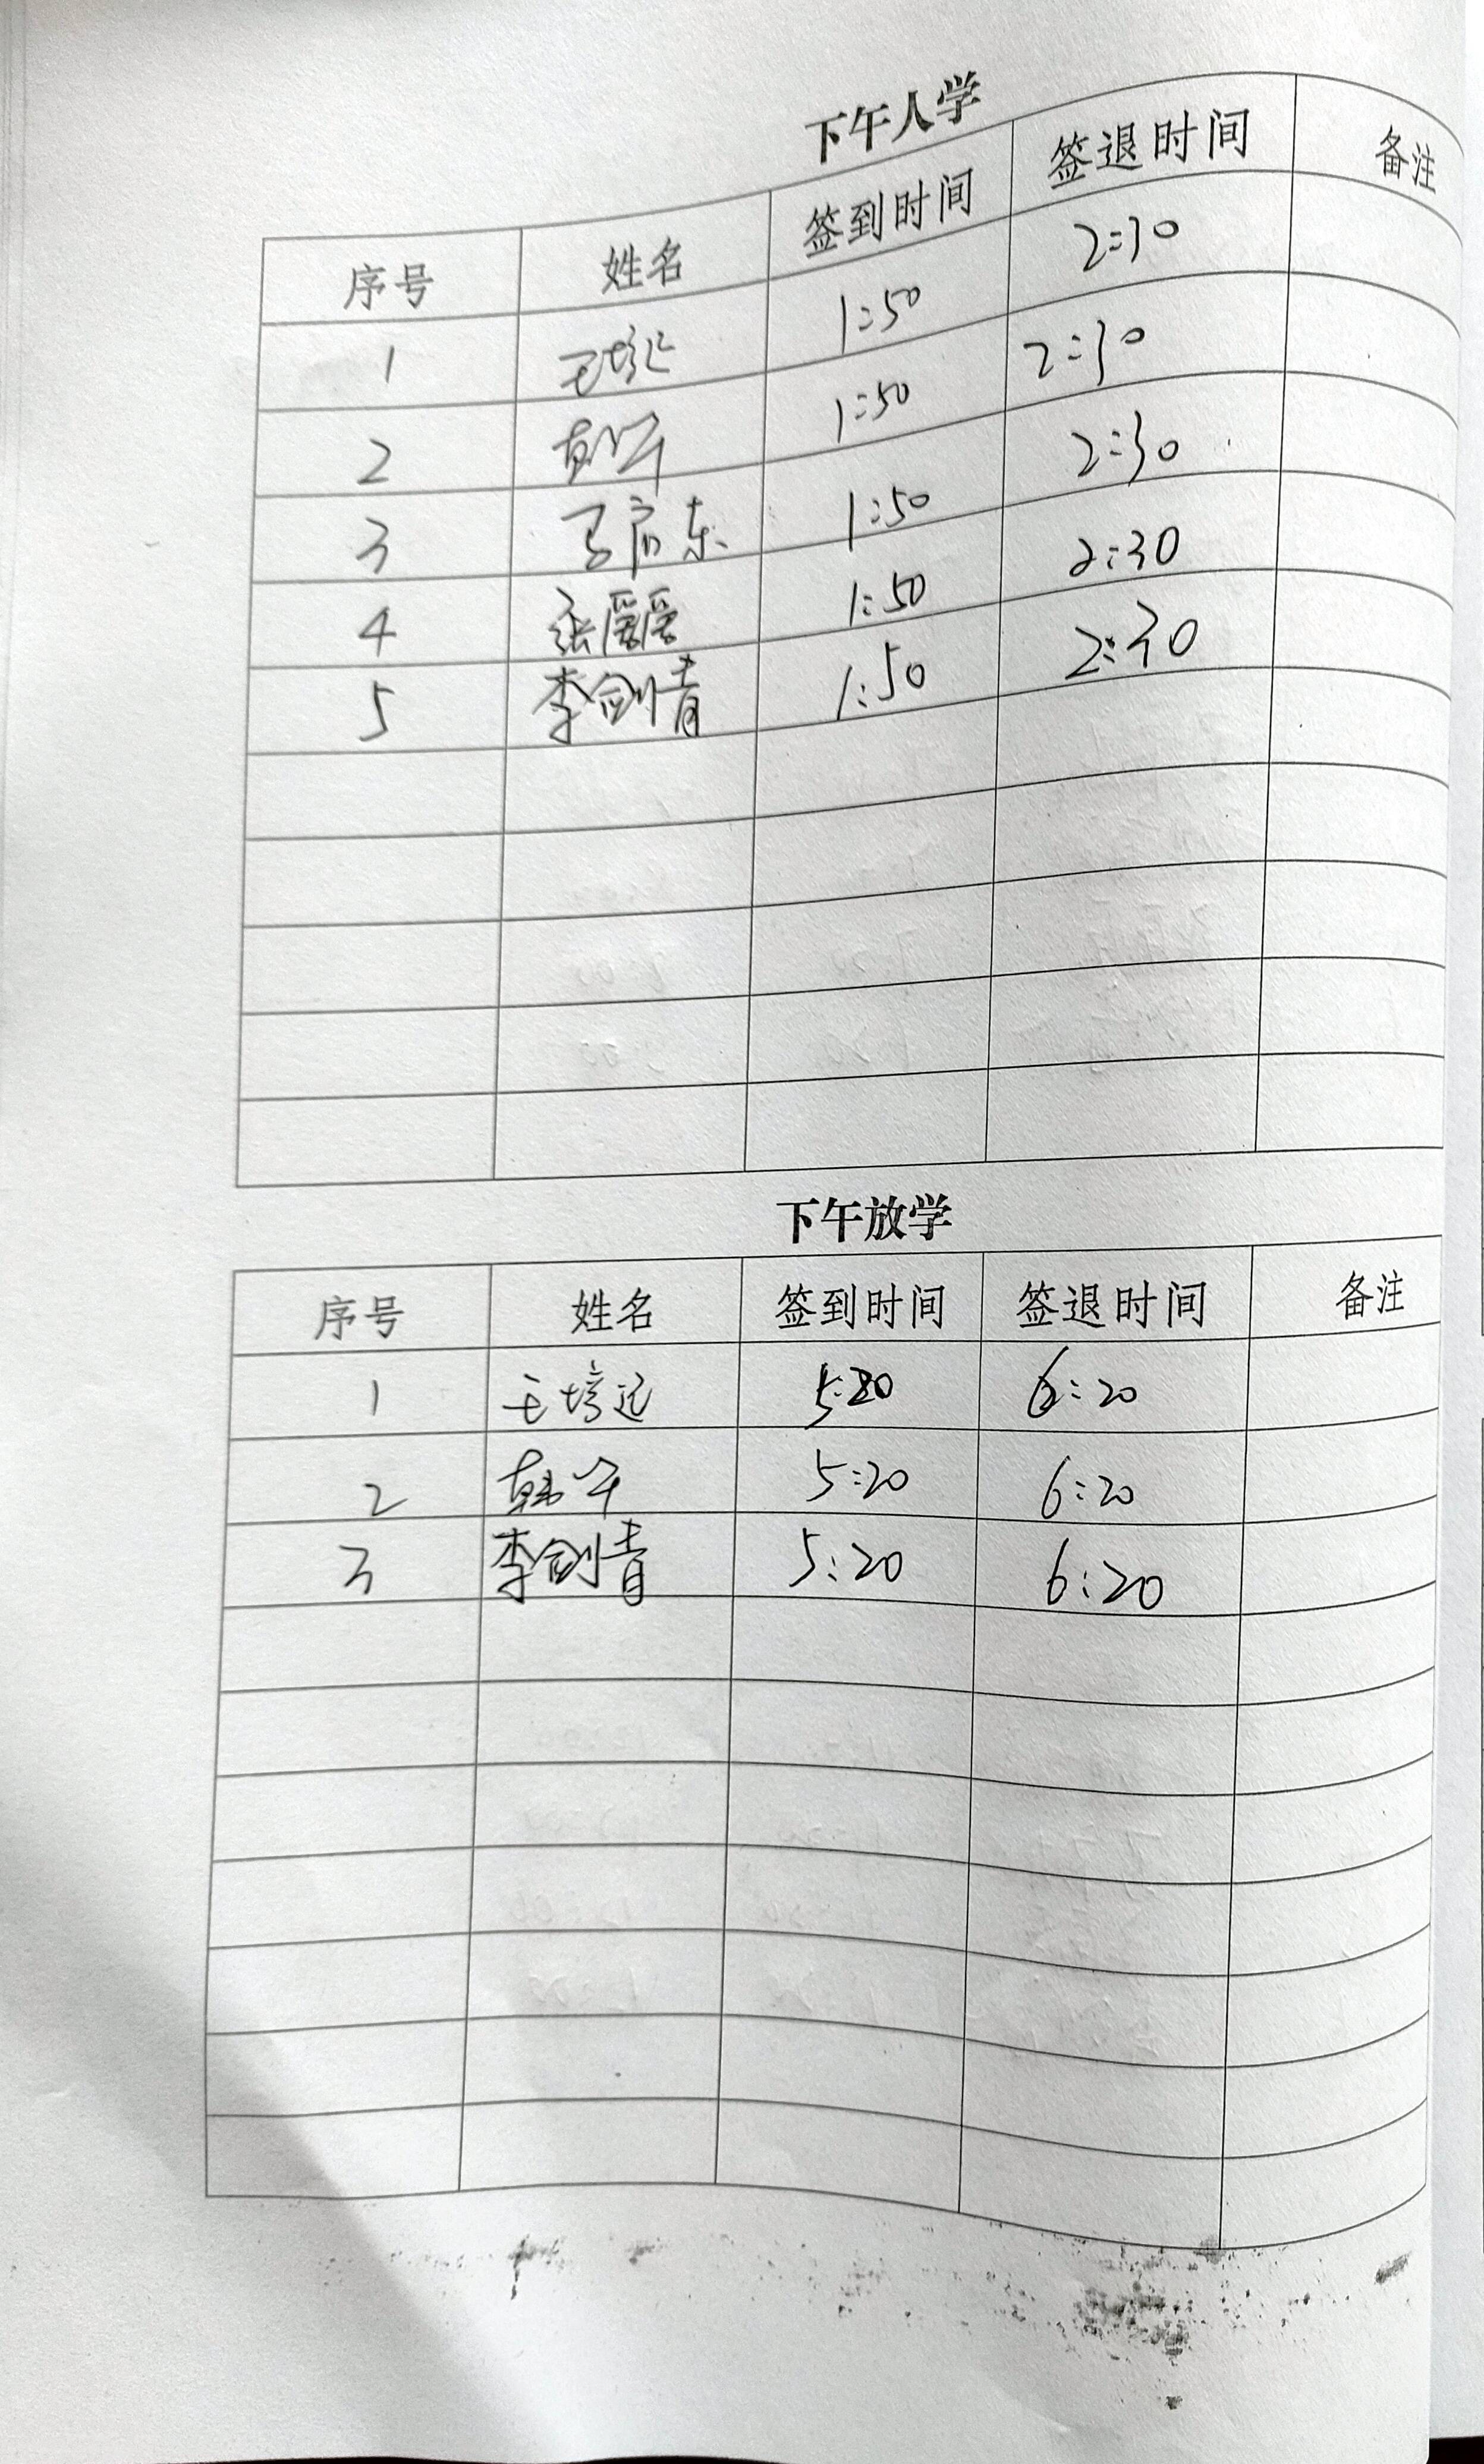 下午人学
序号 姓名 签到时间 签退时间 备注
1 王培远 1:50 2:30
2 韩军 1:50 2:30
3 马启东 1:50 2:30
4 张爱爱 1:50 2:30
5 李剑情 1:50 2:30
下午放学
序号 姓名 签到时间 签退时间 备注
1 王培远 5:20 6:20
2 韩军 5:20 6:20
3 李剑情 5:20 6:20